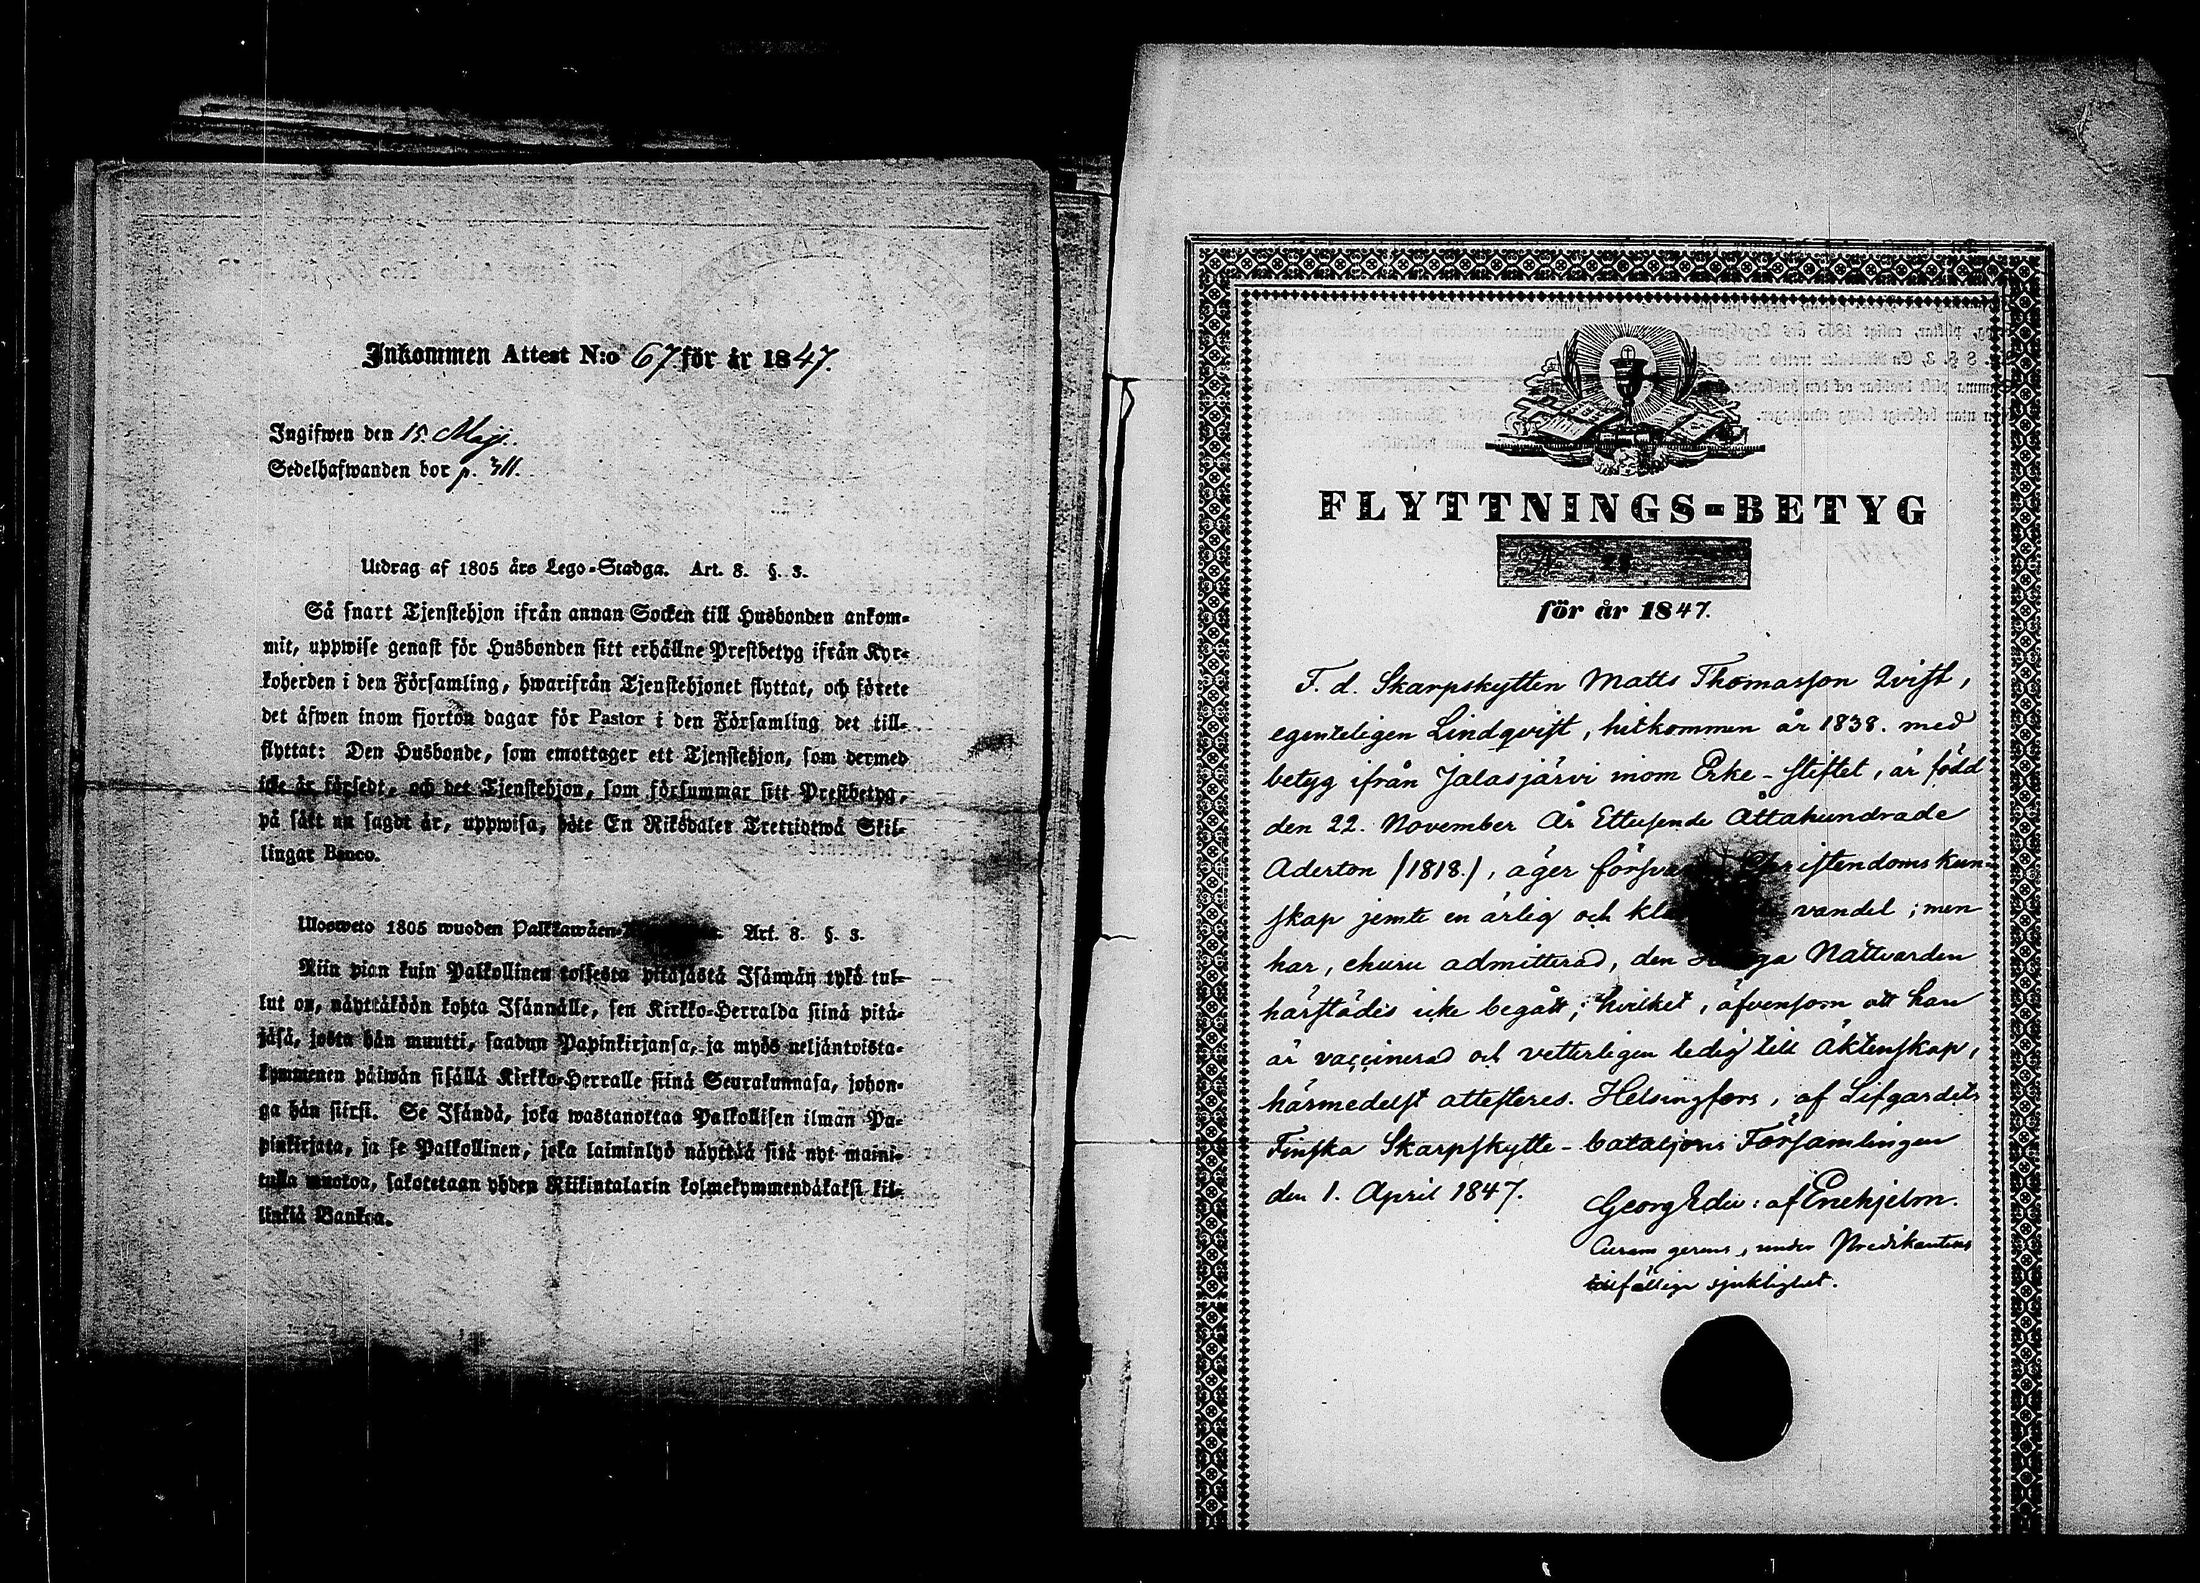 Inkommen Attest N:o 67 för år 1847.
Ingifwen den 15. Maji.
Sedelhafwanden bor p. 311.
Utdrag af 1805 års Lego-Stadga. Art. 8. §. 3.
Så snart Tjenstehjon ifrån annan Socken till Husbonden ankom-
mit, uppwise genast för Husbonden sitt erhållne Prestbetyg ifrån Kyr-
koherden i den Församling, hwarifrån Tjenstehjonet flyttat, och förete
det äfwen inom fjorton dagar för Pastor i den Församling det till-
flyttat: Den Husbonde, som emottager ett Tjenstehjon, som dermed
icke är försedt, och det Tjenstehjon, som försummar sitt Prestbetyg,
på sätt nu sagdt är, uppwisa, böte En Riksdaler Trettiotwå Skil-
lingar Banco.
Ulosweto 1805 wuoden Palkkawäen- Art. 8. §. 3.
Niin pian kuin Palkollinen toisesta pitäjästä Isännän tykö tul-
lut on, näyttäköön kohta Isännälle, sen Kirkko-Herralda siinä pitä-
jäsä, josta hän muutti, saadun Papinkirjansa, ja myös neljäntoista-
kymmenen päiwän sisällä Kirkko-Herralle siinä Seurakunnasa, johon-
ga hän siirsi. Se Isändä, joka wastanottaa Palkollisen ilman Pa-
pinkirjata, ja se Palkollinen, joka laiminlyö näyttää sitä nyt maini-
tulla muotoa, sakotetaan yhden Riikintalarin kolmekymmendäkaksi kil-
linkiä Bankoa.
FLYTTNINGS-BETYG
för år 1847.
F. d. Skarpskytten Matts Thomasson Qvist,
egenteligen Lindqvist, hitkommen år 1838. med
betyg ifrån Jalasjärvi inom Erke-stiftet, är född
den 22. November År Ettusende Åttahundrade
Aderton /1818./, äger Christendoms kun-
skap jemte en ärlig och vandel; men
har, ehuru admitterad, den Nattvarden
härstädes icke begått; hvilket, äfvensom att han
är vaccinerad och vetterligen ledig till Äktenskap,
härmedelst attesteres. Helsingfors, af Lifgardets
Finska Skarpskytte-bataljons Församlingen
den 1. April 1847.
Georg Edv: af Enehjelm.
Curam gerens, under Predikantens
tillfällige sjuklighet.